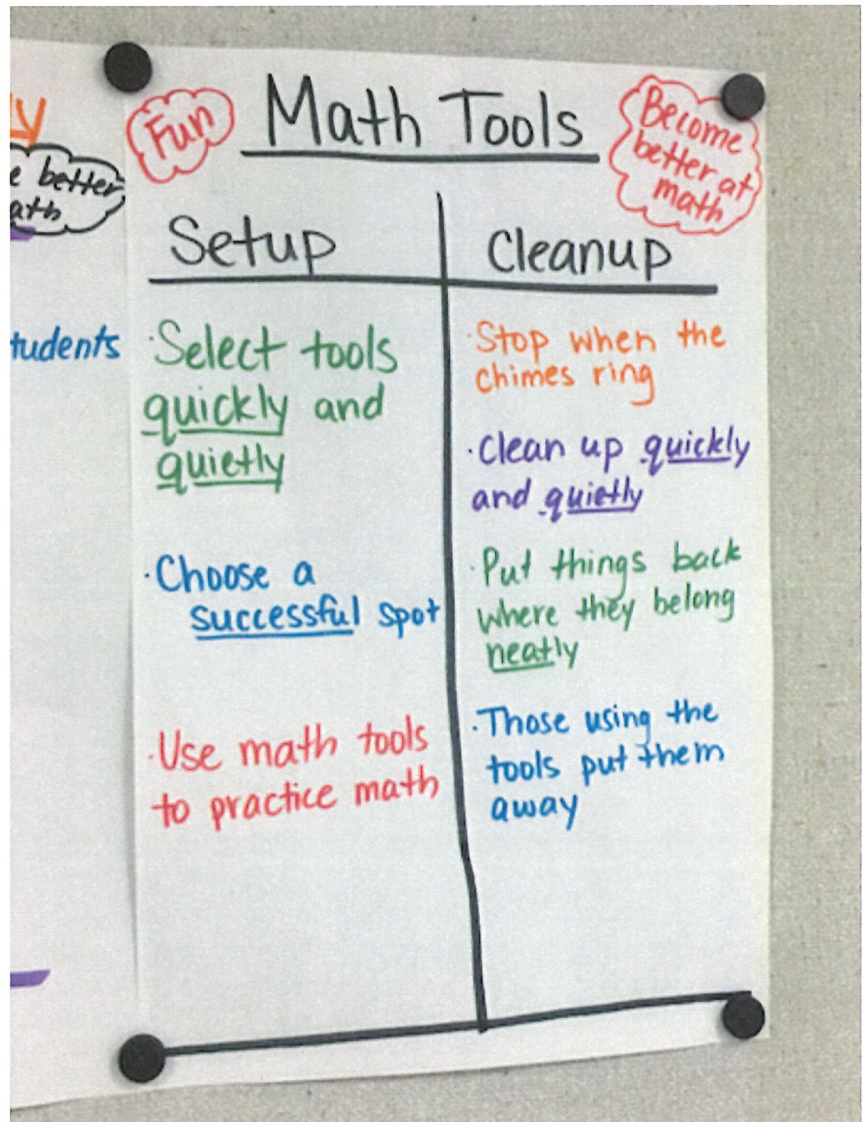 y
e better
ath
tudents
Fun
Math Tools
Become
better at
math
Setup
·Select tools
quickly and
quietly
·Choose a
successful spot
·Use math tools
to practice math
Cleanup
·Stop when the
chimes ring
·Clean up quickly
and quietly
·Put things back
where they belong
neatly
·Those using the
tools put them
away